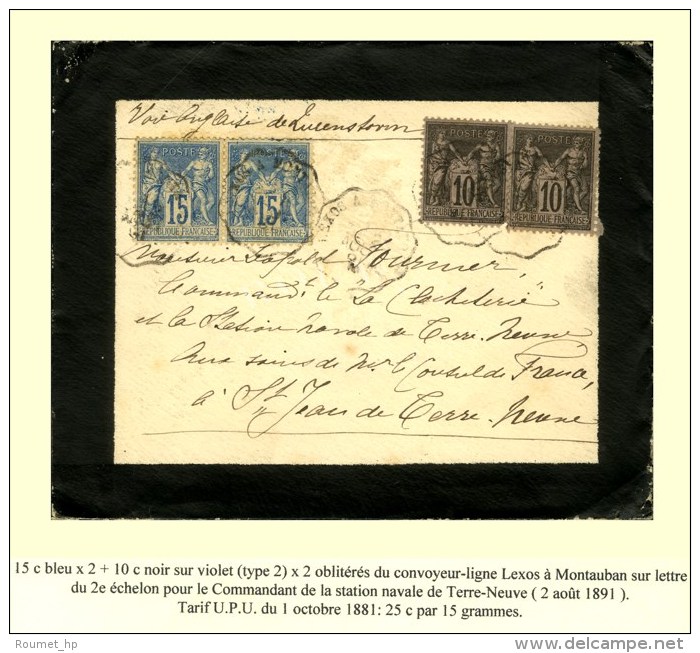 Voie Anglaise de Queenstown
POSTE POSTE POSTE POSTE
15 15 10 10
REPUBLIQUE FRANÇAISE REPUBLIQUE FRANÇAISE REPUBLIQUE FRANÇAISE REPUBLIQUE FRANÇAISE
LEXOS A
Monsieur Léopold Fournier,
Commandt le "La Clocheterie"
et la Station navale de Terre-Neuve,
Aux soins de Mr le Consul de France,
à St Jean de Terre-Neuve
15 c bleu x 2 + 10 c noir sur violet (type 2) x 2 oblitérés du convoyeur-ligne Lexos à Montauban sur lettre
du 2e échelon pour le Commandant de la station navale de Terre-Neuve ( 2 août 1891 ).
Tarif U.P.U. du 1 octobre 1881: 25 c par 15 grammes.
Roumet_hp
delcampe.net